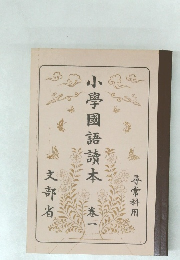 小學國語讀本 卷一
尋常科用
文部省